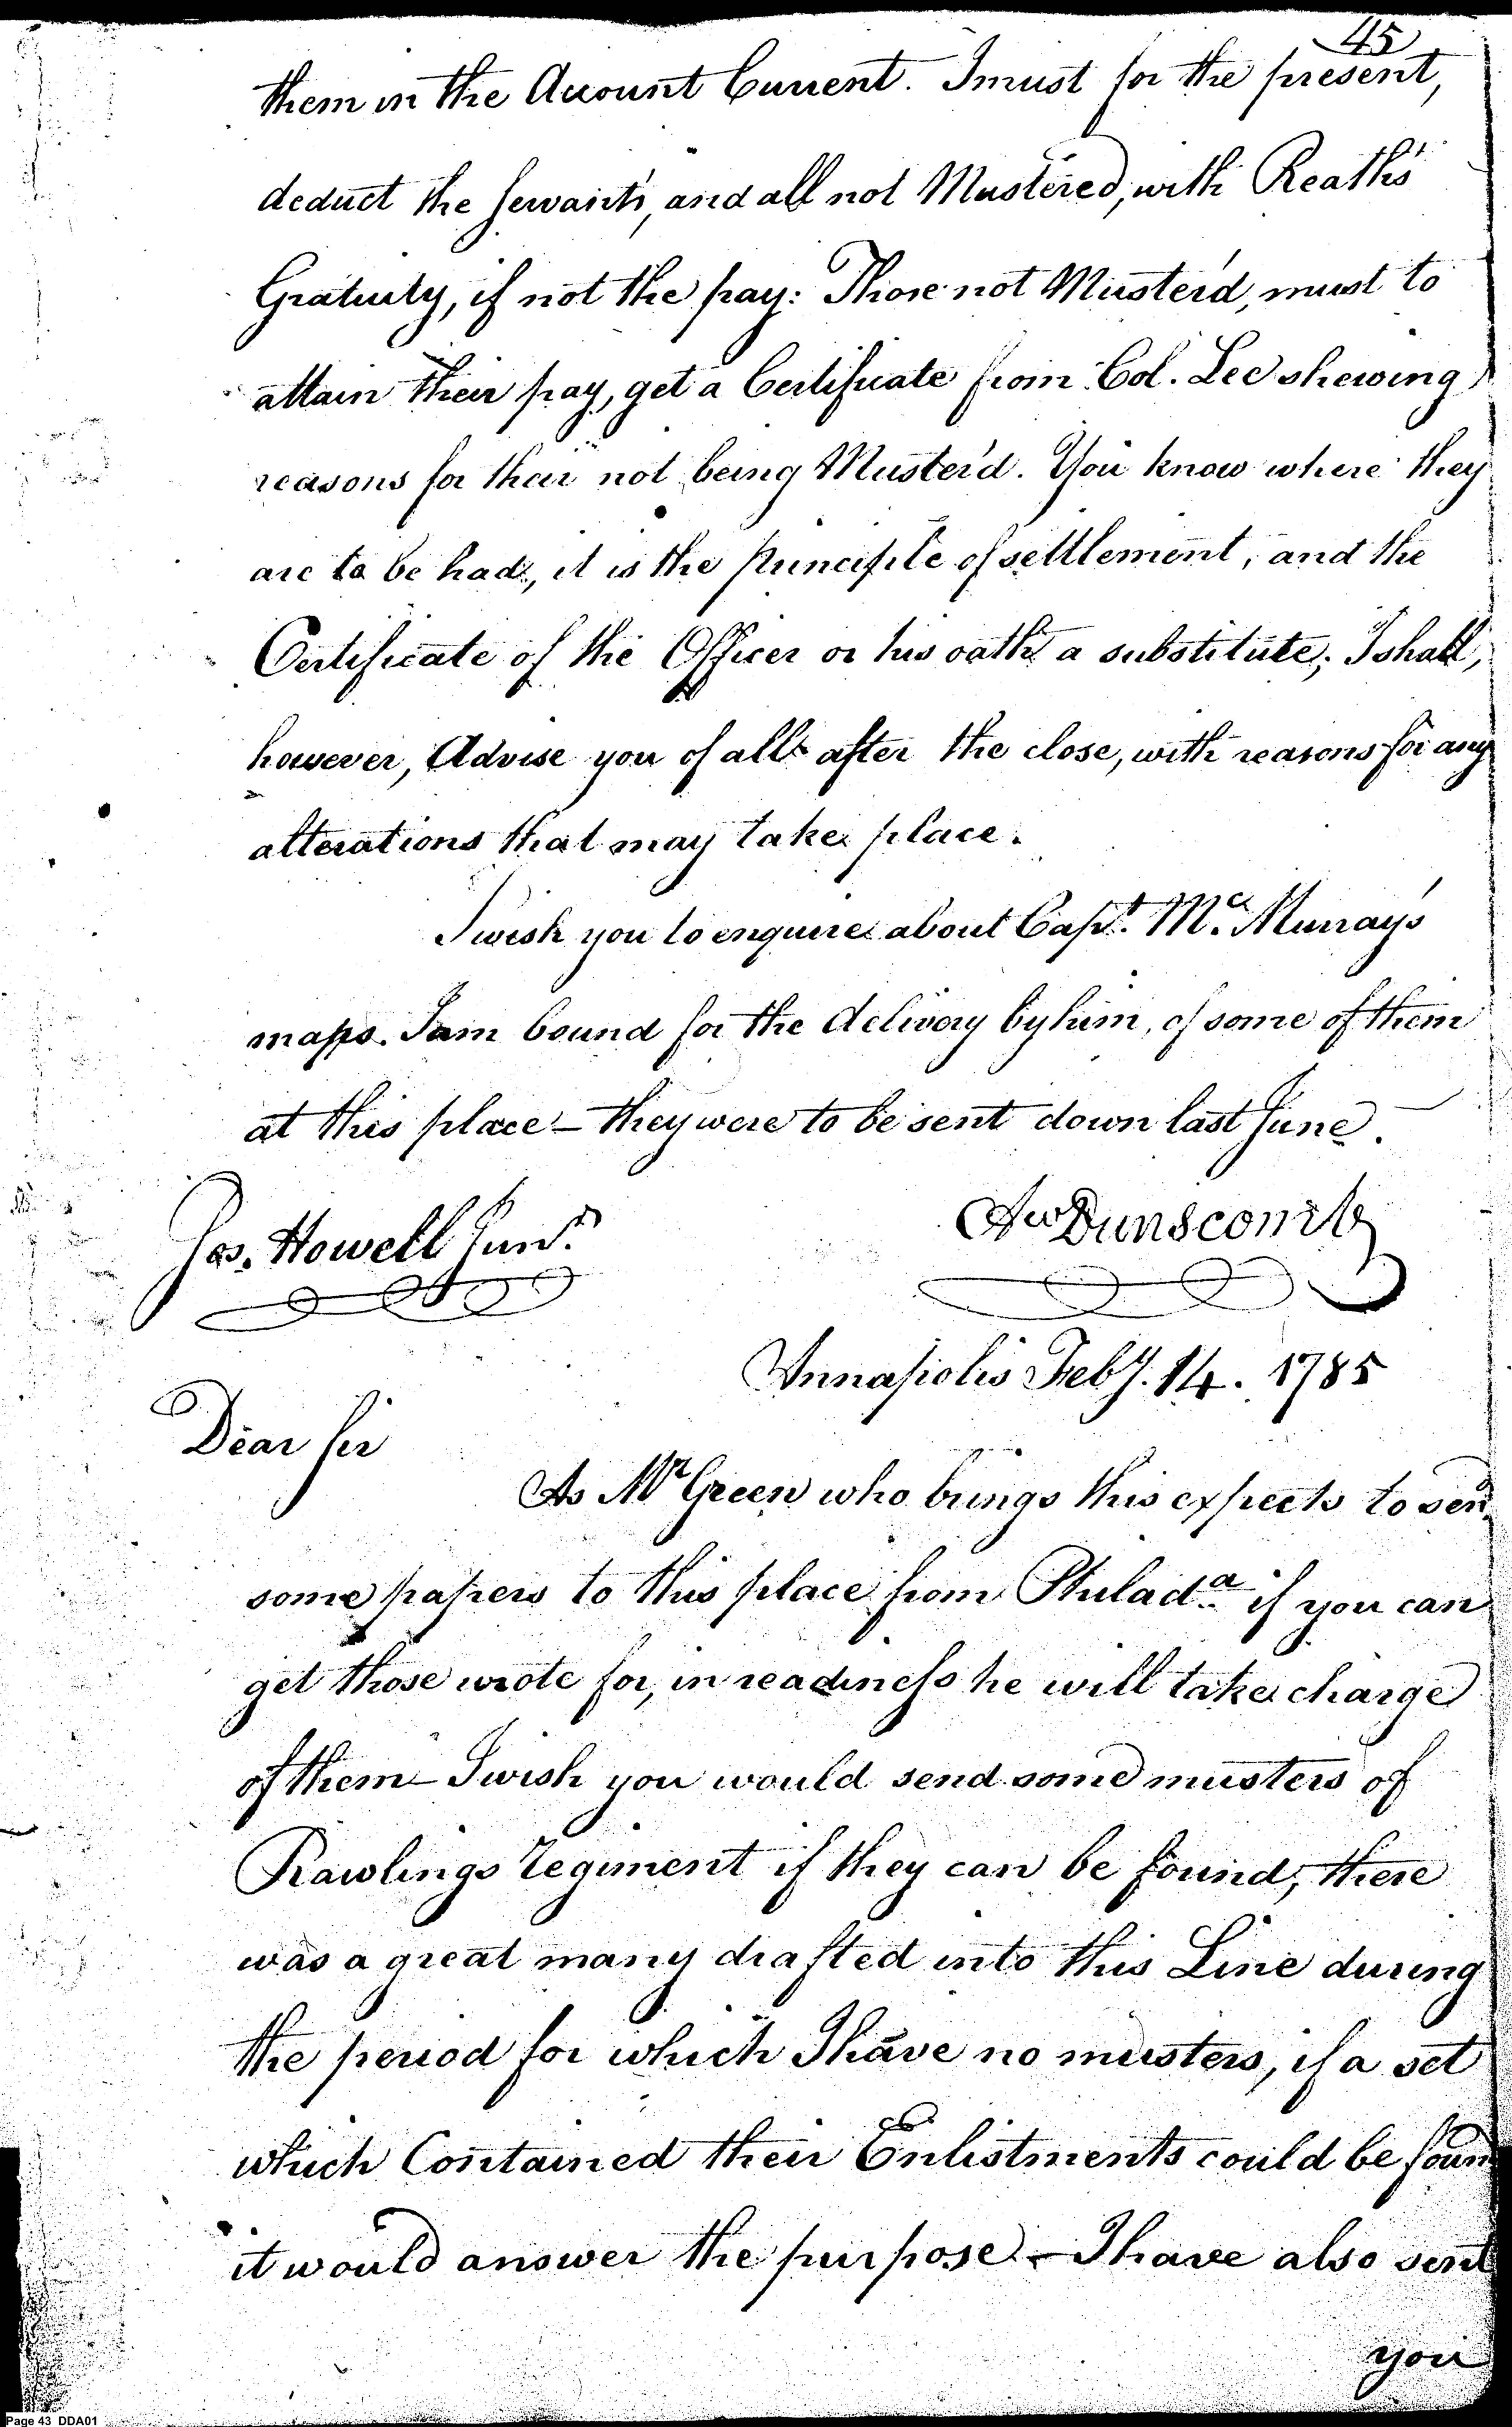 45
them in the Account Current. I must for the present,
deduct the servants, and all not Mustered, with Reath's
Gratuity, if not the pay: Those not Muster'd, must to
attain their pay, get a Certificate from Col. Lee shewing
reasons for their not being Muster'd. You know where they
are to be had, it is the principle of settlement, and the
Certificate of the Officer or his oath a substitute; I shall,
however, Advise you of all after the close, with reasons for any
alterations that may take place.
I wish you to enquire about Capt. Mc. Murray's
maps. I am bound for the delivery by him, of some of them
at this place – they were to be sent down last June.
Jos. Howell Junr.
Aw Dunscomb
Annapolis Feby. 14. 1785
Dear Sir
As Mr Green who brings this expects to send
some papers to this place from Philada. if you can
get those wrote for, in readiness he will take charge
of them – I wish you would send some musters of
Rawlings regiment if they can be found, there
was a great many drafted into this Line during
the period for which I have no musters, if a set
which Contained their Enlistments could be found
it would answer the purpose – I have also sent
you
Page 43 DDA01